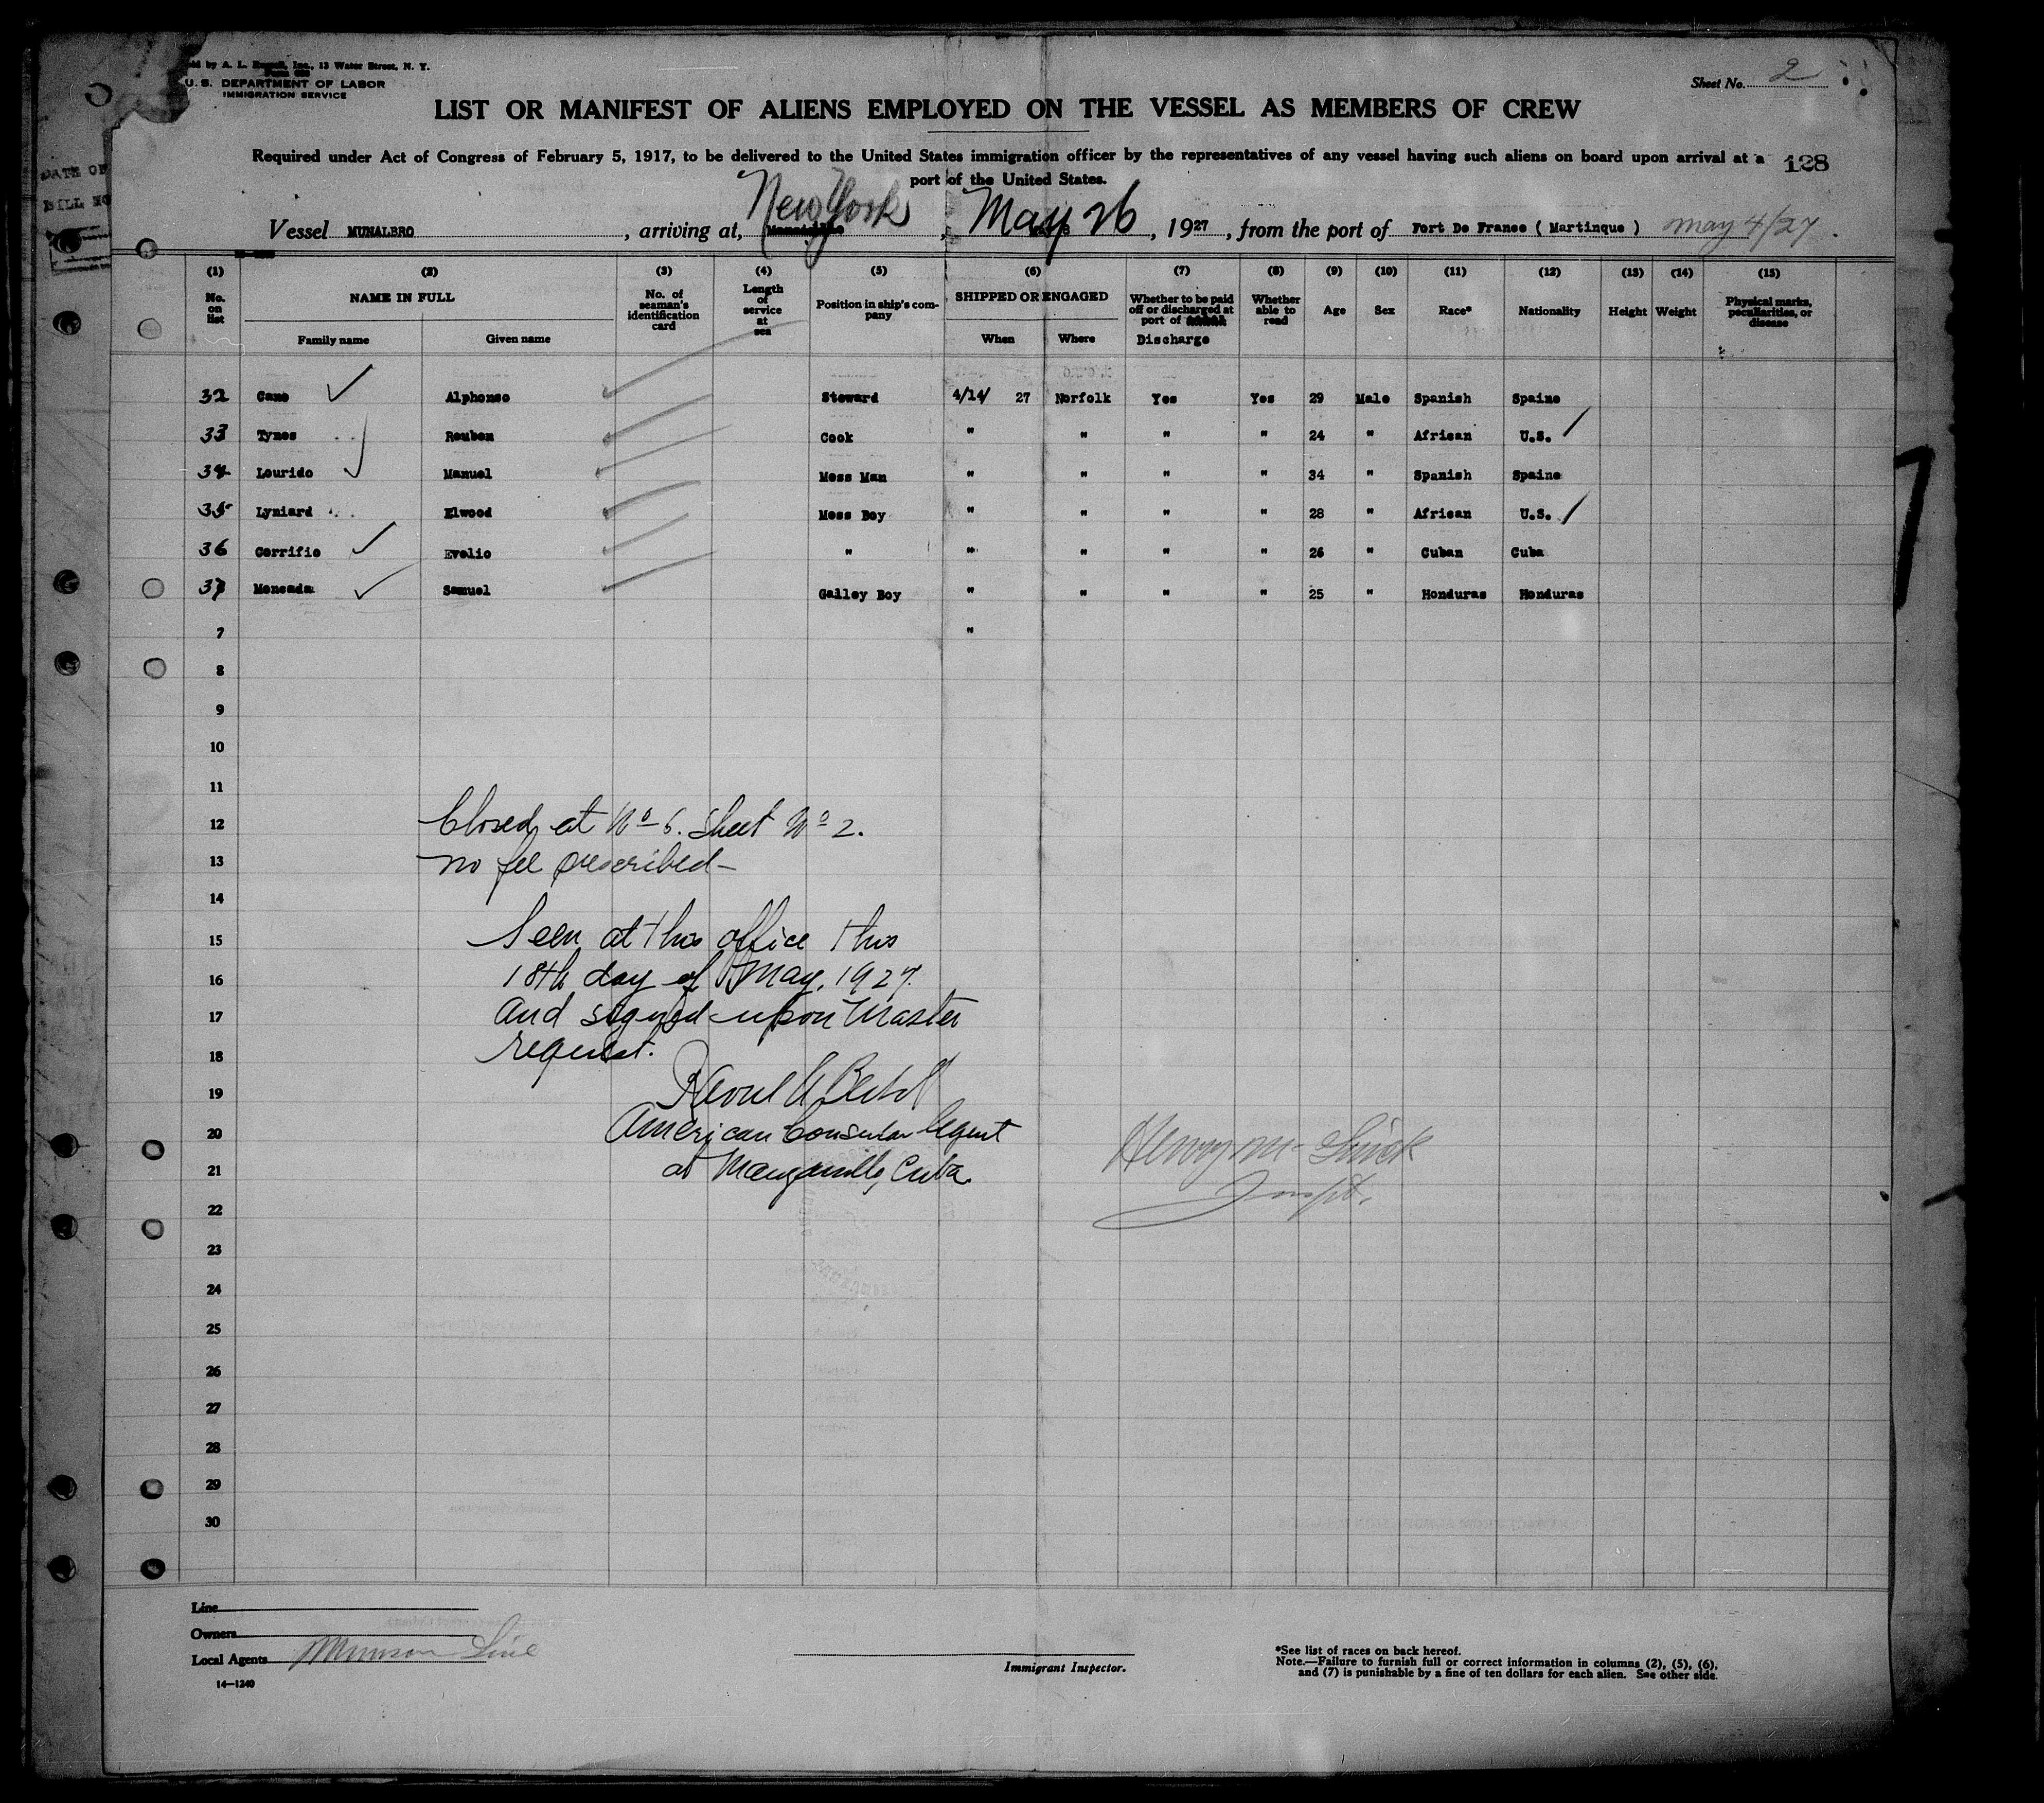 U. S. DEPARTMENT OF LABOR
IMMIGRATION SERVICE
Sheet No. 2
LIST OR MANIFEST OF ALIENS EMPLOYED ON THE VESSEL AS MEMBERS OF CREW
Required under Act of Congress of February 5, 1917, to be delivered to the United States immigration officer by the representatives of any vessel having such aliens on board upon arrival at a
port of the United States.
128
DATE OF
BILL NO
Vessel MUNALBRO, arriving at, New York, May 26, 1927, from the port of Fort De France ( Martinque ) May 4/27.
(1) (2) (3) (4) (5) (6) (7) (8) (9) (10) (11) (12) (13) (14) (15)
No. on list NAME IN FULL No. of seaman's identification card Length of service at sea Position in ship's company SHIPPED OR ENGAGED Whether to be paid off or discharged at port of Discharge Whether able to read Age Sex Race* Nationality Height Weight Physical marks, peculiarities, or disease
Family name Given name When Where
32 Cano Alphonso Steward 4/14/ 27 Norfolk Yes Yes 29 Male Spanish Spaine
33 Tynes Reuben Cook " " " " 24 " African U.S.
34 Lourido Manuel Mess Man " " " " 34 " Spanish Spaine
35 Lyniard Elwood Mess Boy " " " " 28 " African U.S.
36 Corrifio Evelio " " " " " 26 " Cuban Cuba
37 Moncada Samuel Galley Boy " " " " 25 " Honduras Honduras
7 "
8
9
10
11
12
13
14
15
16
17
18
19
20
21
22
23
24
25
26
27
28
29
30
Closed at No 6. Sheet No 2.
no fee prescribed—
Seen at this office this
18th day of May, 1927.
and signed upon Master
request.
American Consular Agent
at Manzanillo, Cuba.
Henry
Inspt.
Line
Owners
Local Agents Munson Line
14—1240
Immigrant Inspector.
*See list of races on back hereof.
Note.—Failure to furnish full or correct information in columns (2), (5), (6),
and (7) is punishable by a fine of ten dollars for each alien. See other side.